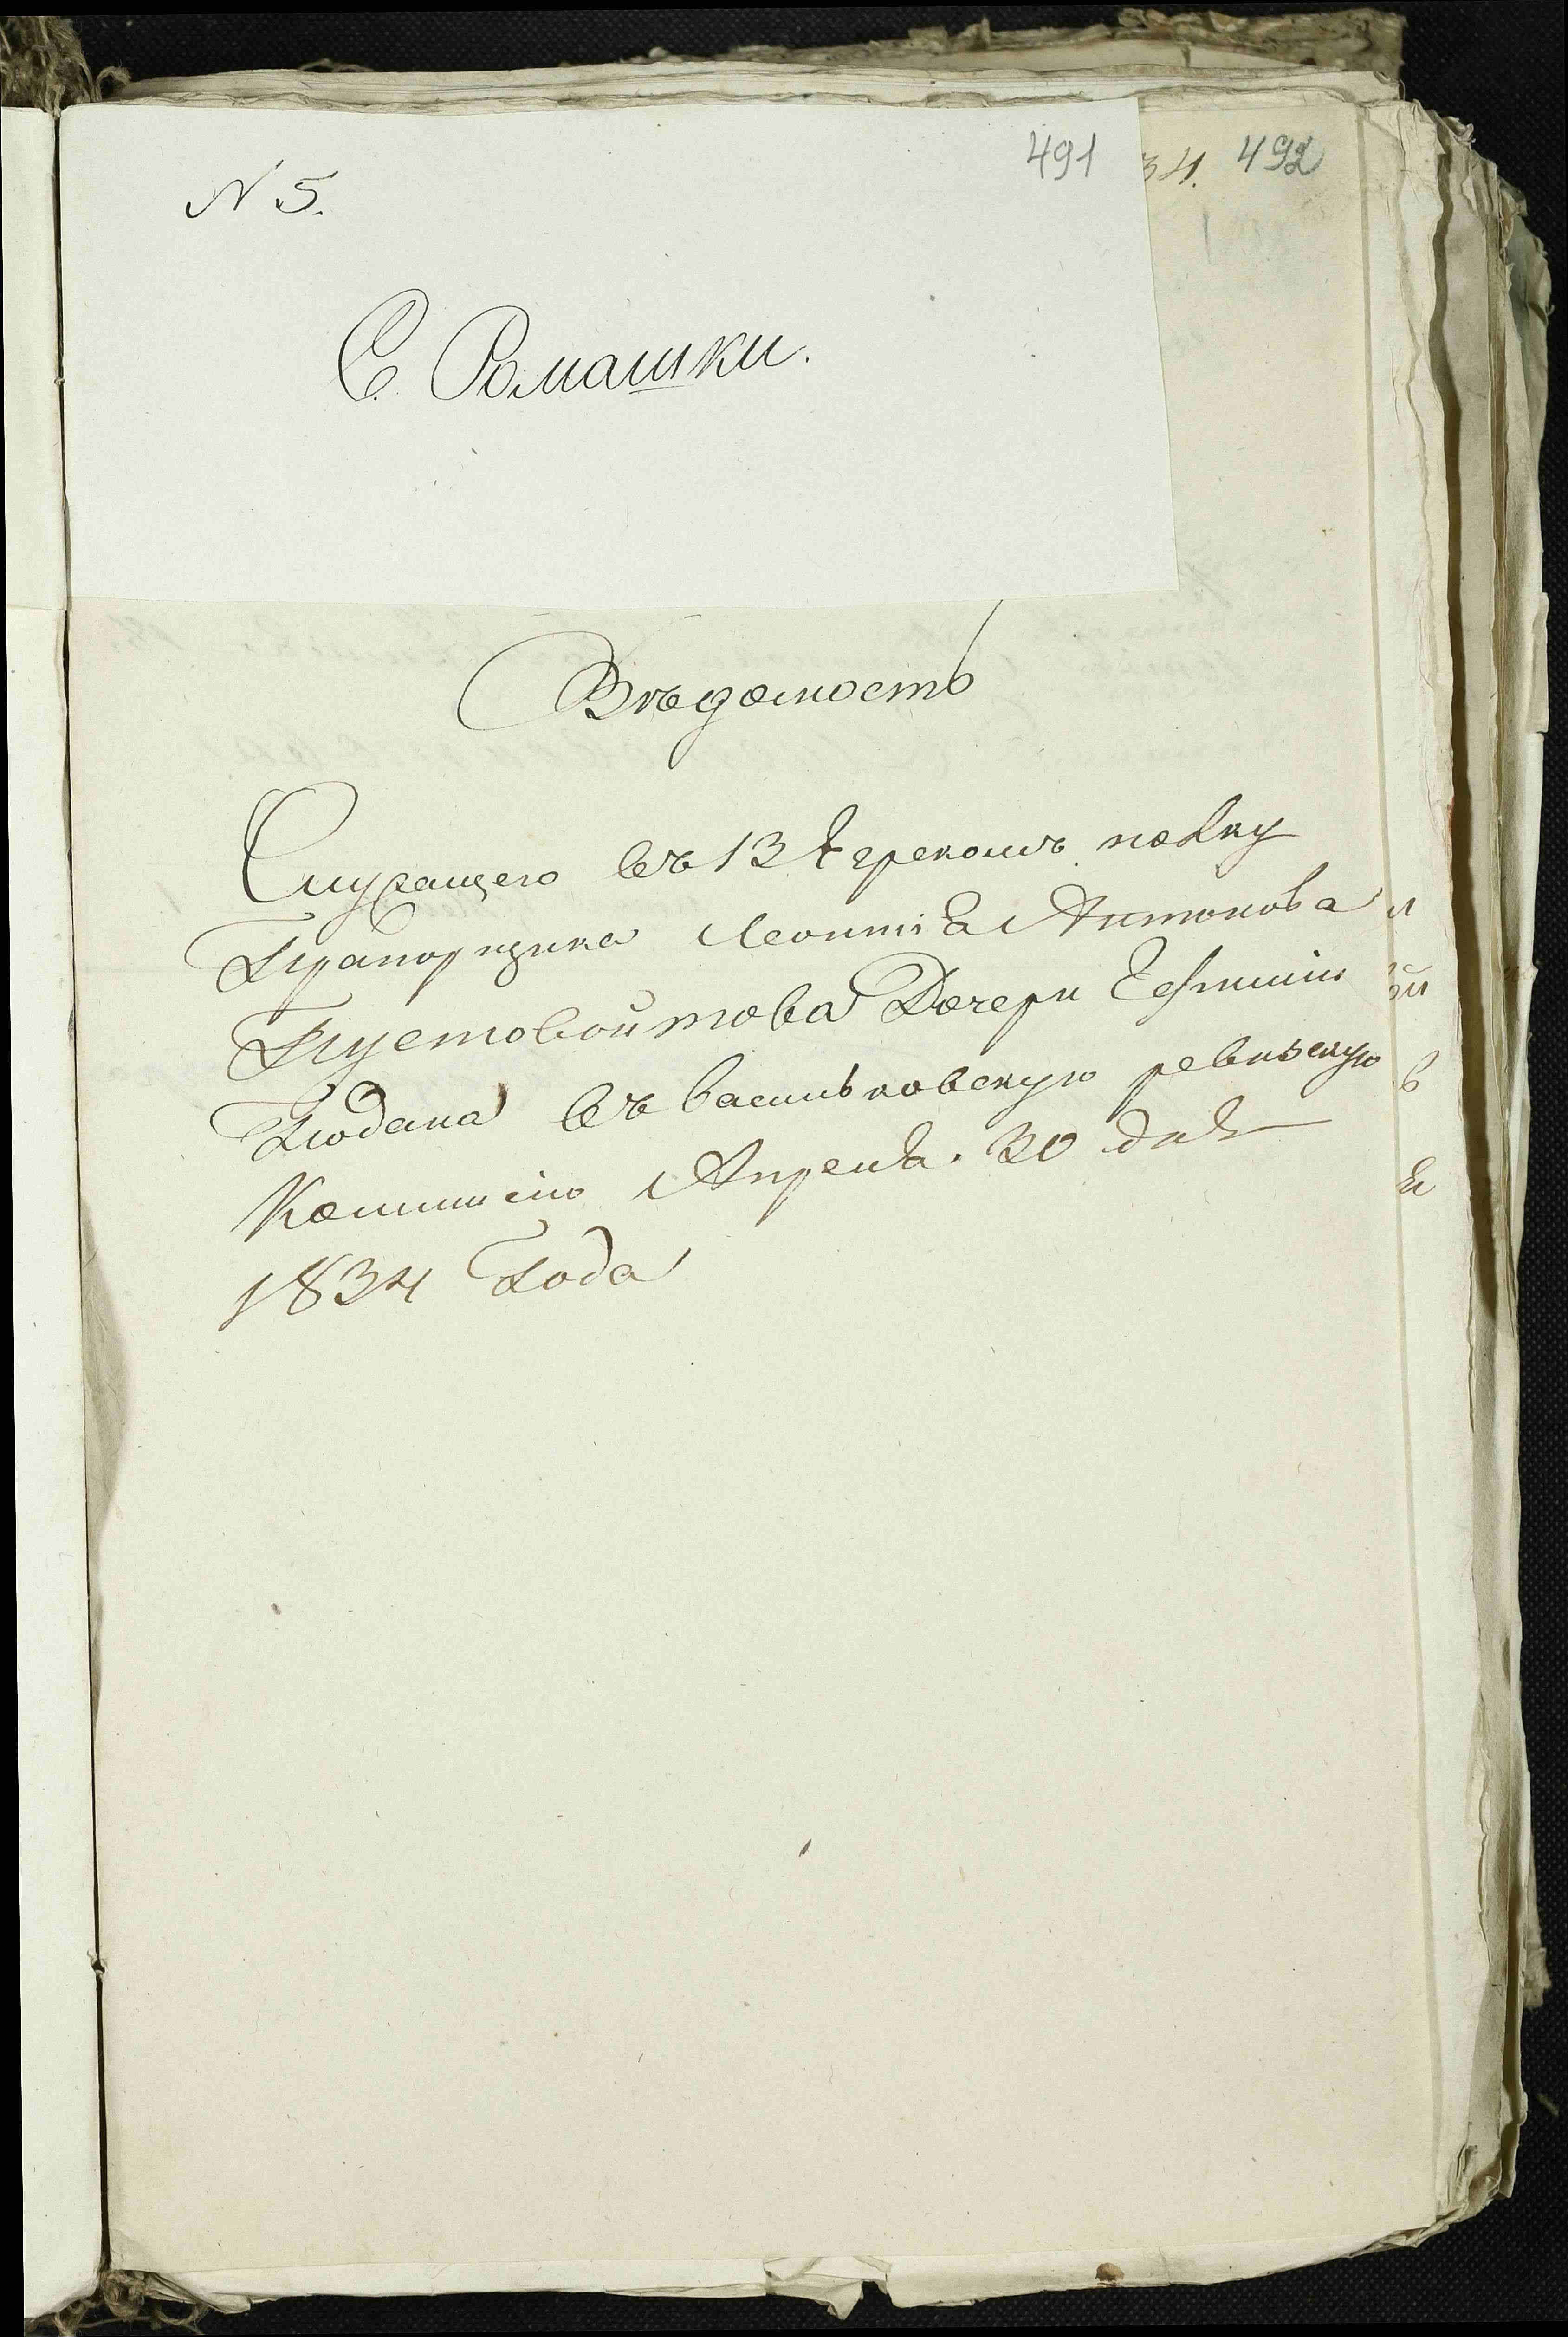 491
34. 492
N 5.
С. Ромашки.
Вѣдомость
Служащего въ 13 Егерскомъ полку
Прапорщика Леонтія Антонова
Пустовойтова Дочери
Подана въ васильковскую ревизскую
Коммисію Апреля. 30 дня
1834 Года